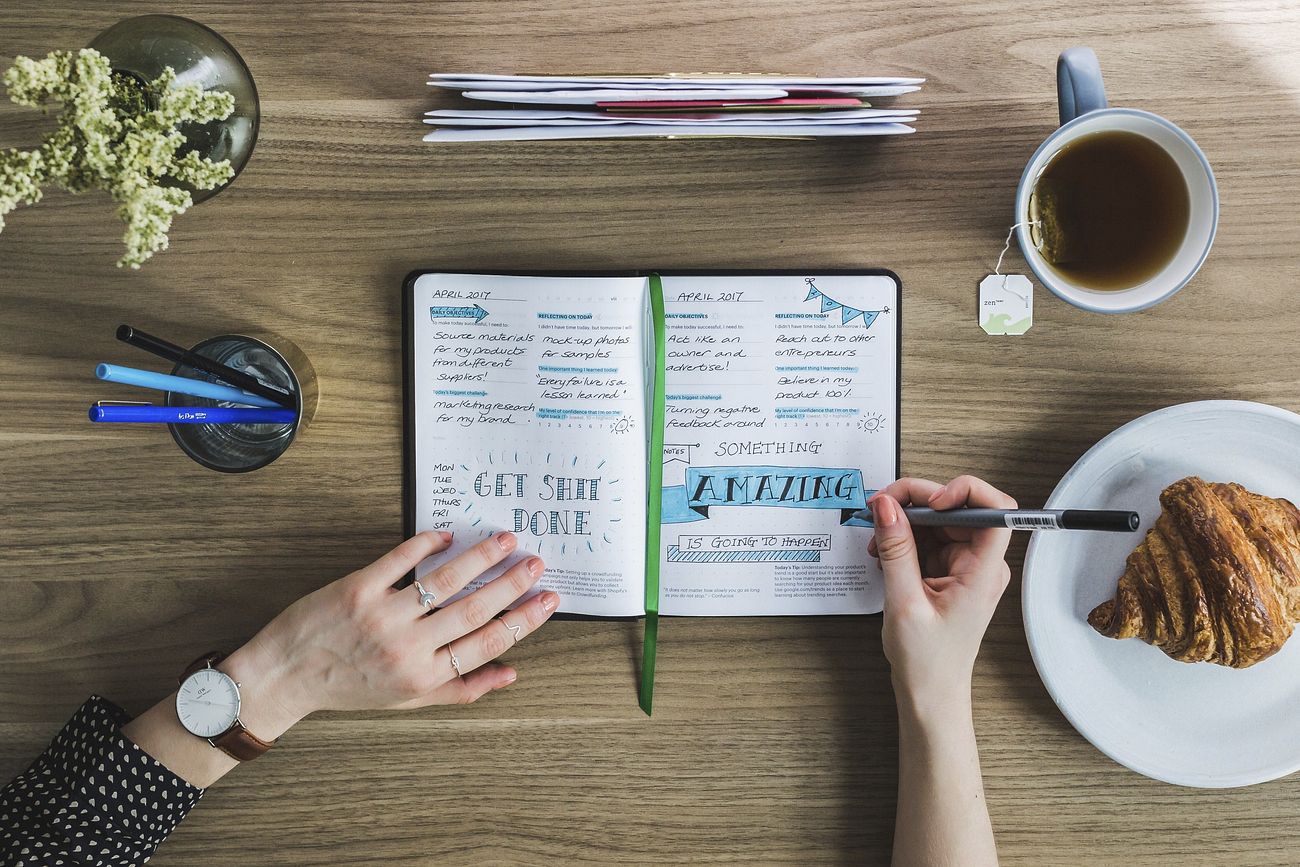 APRIL 2017
DAILY OBJECTIVES
To make today successful, I need to:
Source materials
for my products
from different
suppliers!
Today's biggest challenge
marketing research
for my brand.
REFLECTING ON TODAY
I didn't have time today, but tomorrow I will
mock-up photos
for samples
One important thing I learned today
"Every failure is a
lesson learned"
My level of confidence that I'm on the
right track (1 = lowest, 10 = highest)
1 2 3 4 5 6 7 8 9
MON
TUE
WED
THURS
FRI
SAT
GET SHIT
DONE
Today's Tip: Setting up a crowdfunding
campaign not only helps you validate
but allows you to collect
Learn more with Shopify's
Guide to Crowdfunding.
APRIL 2017
To make today successful, I need to:
Act like an
owner and
advertise!
Today's biggest challenge
Turning negative
feedback around
REFLECTING ON TODAY
I didn't have time today, but tomorrow I will
Reach out to other
entrepreneurs
One important thing I learned today
Believe in my
product 100%
My level of confidence that I'm on the
right track (1 = lowest, 10 = highest)
1 2 3 4 5 6 7 8 9 10
NOTES
SOMETHING
AMAZING
IS GOING TO HAPPEN
"It does not matter how slowly you go as long
as you do not stop." - Confucius
Today's Tip: Understanding your product's
trend is a good start but it's also important
to know how many people are currently
searching for your product idea each month.
Use google.com/trends as a place to
start learning about trending searches.
zen